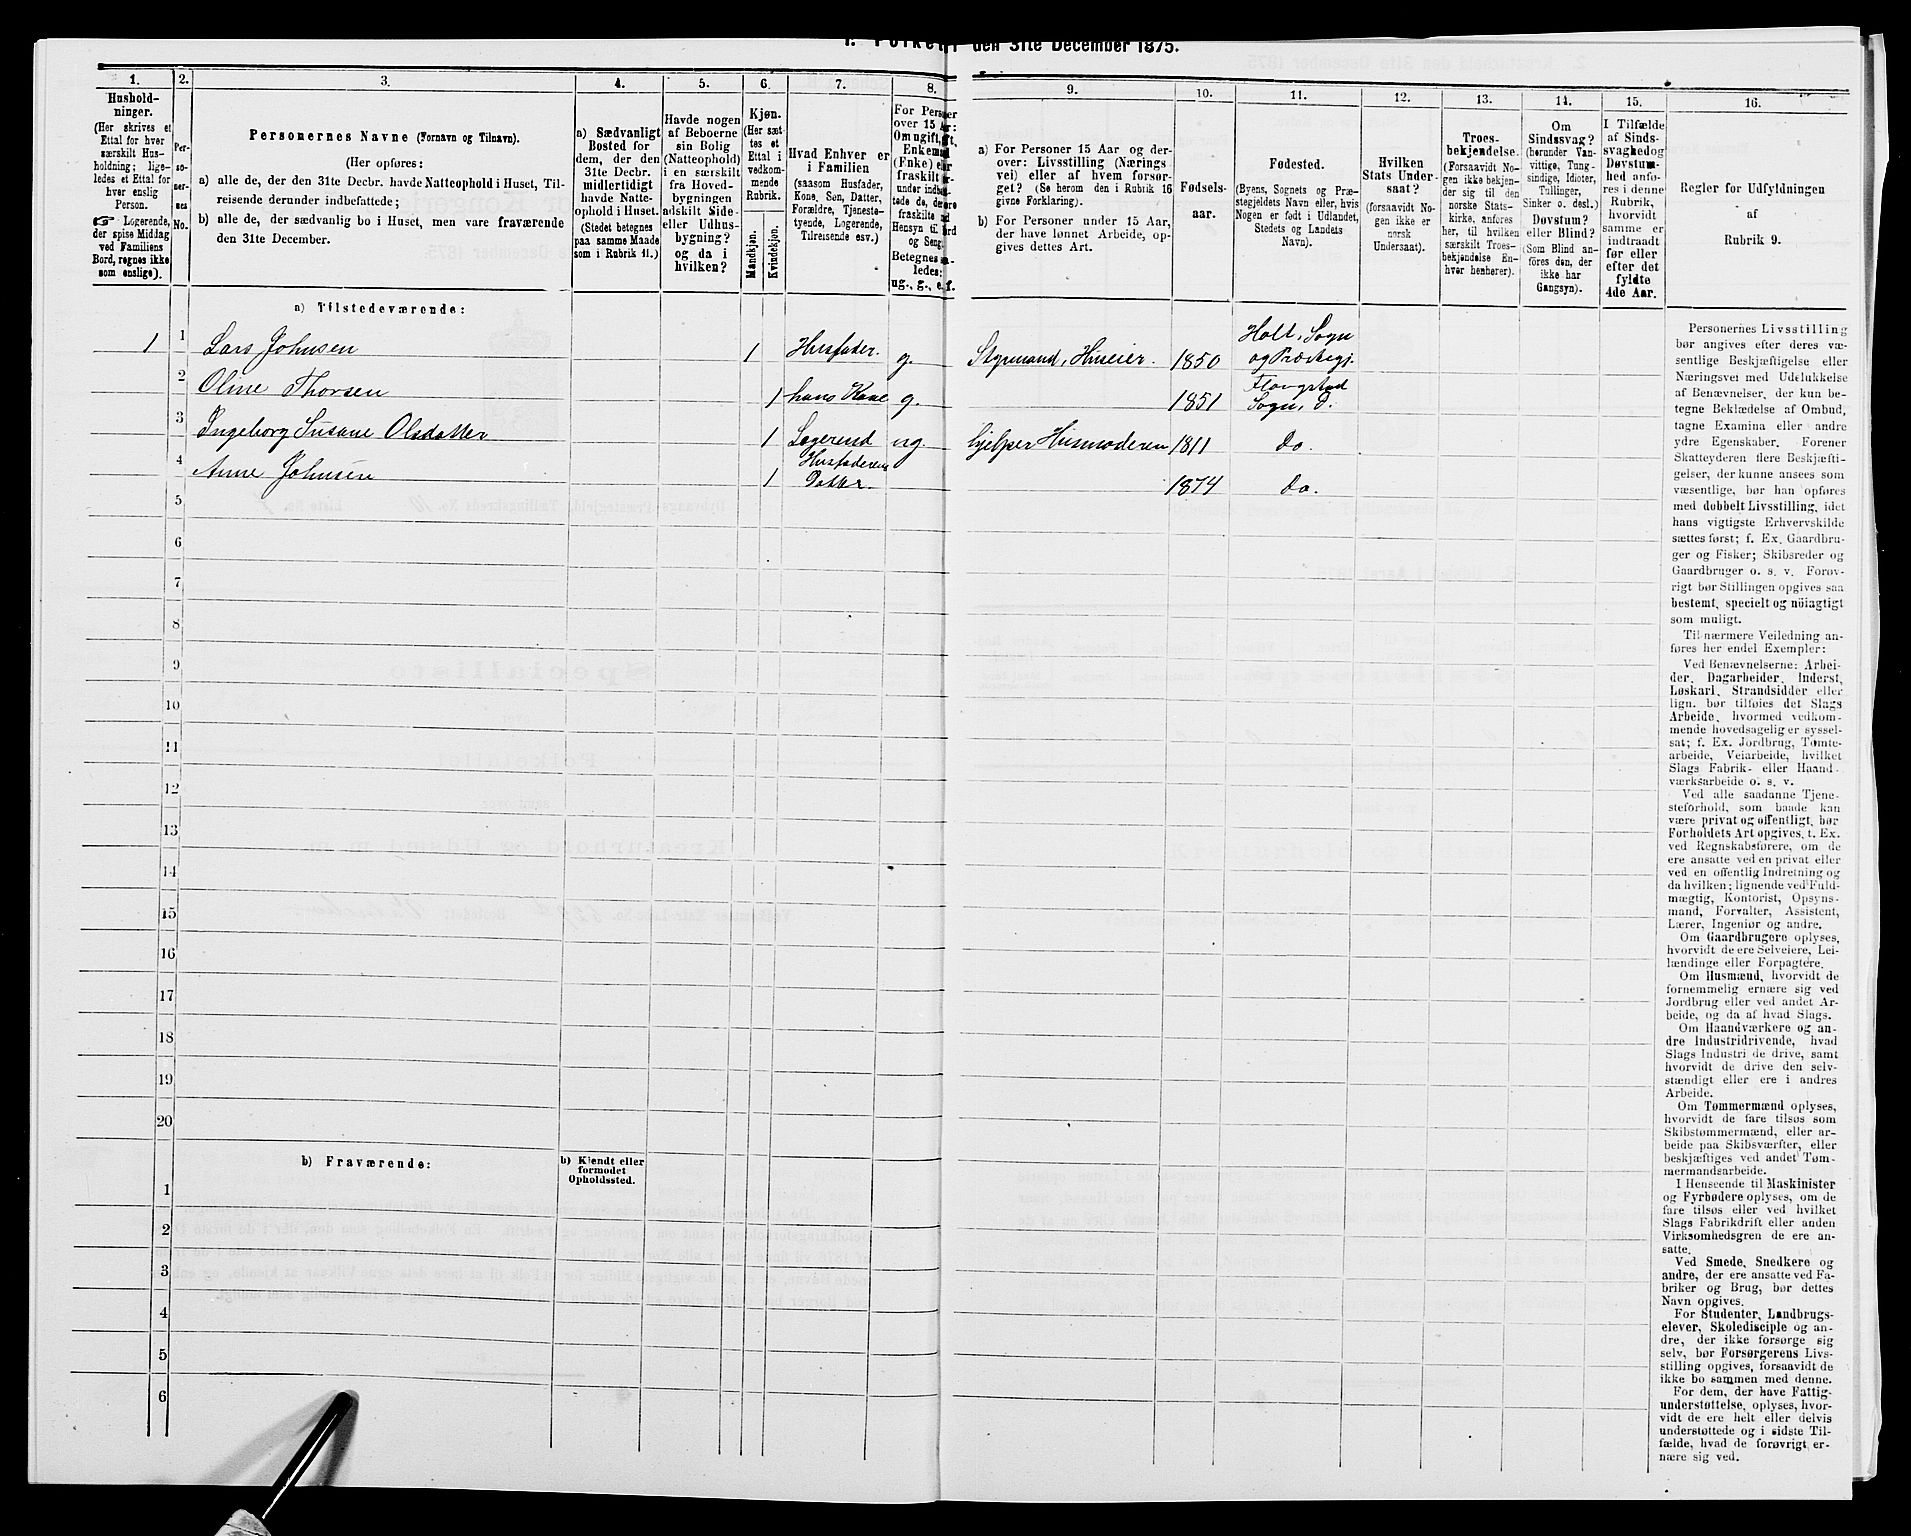 den 31te December 1875.
1. 2. 3. 4. 5. 6. 7. 8. 9. 10. 11. 12. 13. 14. 15. 16.
Hushold-
ninger.
(Her skrives et
Ettal for hver
særskilt Hus-
holdning; lige-
ledes et Ettal for
hver enslig
Person.
☞ Logerende,
der spise Middag
ved Familiens
Bord, regnes ikke
som enslige).
Per-
so-
ner-
nes
No.
Personernes Navne (Fornavn og Tilnavn).
(Her opføres:
a) alle de, der den 31te Decbr. havde Natteophold i Huset, Til-
reisende derunder indbefattede;
b) alle de, der sædvanlig bo i Huset, men vare fraværende
den 31te December.
a) Sædvanligt
Bosted for
dem, der den
31te Decbr.
midlertidigt
havde Natte-
ophold i Huset.
(Stedet betegnes
paa samme Maade
som i Rubrik 11.)
Havde nogen
af Beboerne
sin Bolig
(Natteophold)
i en særskilt
fra Hoved-
bygningen
adskilt Side-
eller Udhus-
bygning?
og da i
hvilken?
Kjøn.
(Her sæt-
tes et
Ettal i
vedkom-
mende
Rubrik.
Mandkjøn.
Kvindekjøn.
Hvad Enhver er
i Familien
(saasom Husfader,
Kone, Søn, Datter,
Forældre, Tjeneste-
tyende, Logerende,
Tilreisende osv.)
For Person
over 15 Aar:
Om ugift,
Enkemand
(Enke) eller
fraskilt
Betegnes
ledes:
ug., g., e., f.
a) For Personer 15 Aar og der-
over: Livsstilling (Nærings
vei) eller af hvem forsør-
get? (Se herom den i Rubrik 16
givne Forklaring).
b) For Personer under 15 Aar,
der have lønnet Arbeide, op-
gives dettes Art.
Fødsels-
aar.
Fødested.
(Byens, Sognets og Præ-
stegjeldets Navn eller, hvis
Nogen er født i Udlandet,
Stedets og Landets
Navn).
Hvilken
Stats Under-
saat?
(forsaavidt No-
gen ikke er
norsk
Undersaat).
Troes-
bekjendelse.
(Forsaavidt No-
gen ikke bekjen-
der sig til den
norske Stats-
kirke, anføres
her, til hvilken
særskilt Troes-
bekjendelse En-
hver henhører).
Om
Sindssvag?
(herunder Van-
vittige, Tung-
sindige, Idioter,
Tullinger,
Sinker o. desl.)
Døvstum?
eller Blind?
(Som Blind an-
føres den, der
ikke har
Gangsyn).
I Tilfælde
af Sinds-
svaghed og
Døvstum-
hed anfø-
res i denne
Rubrik,
hvorvidt
samme er
indtraadt
før eller
efter det
fyldte
4de Aar.
Regler for Udfyldningen
af
Rubrik 9.
a) Tilstedeværende:
1 1 Lars Johnsen 1 Husfader. g. Styrmand, Huseier. 1850 Holt, Sogn
og Præstegj.
2 Oline Thorsen 1 hans Kone g. 1851
Sogn, D.
3 Ingeborg Susane Olsdatter 1 Logerend ug. hjelper Husmoderen 1811 Do.
4 Anne Johnsen 1 Husfaderens
Datter. 1874 Do.
5
6
7
8
9
10
11
12
13
14
15
16
17
18
19
20
b) Fraværende:
b) Kjendt eller
formodet
Opholdssted.
1
2
3
4
5
6
Personernes Livsstilling
bør angives efter deres væ-
sentlige Beskjæftigelse eller
Næringsvei med Udelukkelse
af Benævnelser, der kun be-
tegne Beklædelse af Ombud,
tagne Examina eller andre
ydre Egenskaber. Forener
Skatteyderen flere Beskjæfti-
gelser, der kunne ansees som
væsentlige, bør han opføres
med dobbelt Livsstilling, idet
hans vigtigste Erhvervskilde
sættes først; f. Ex. Gaardbru-
ger og Fisker; Skibsreder og
Gaardbruger o. s. v. Forøv-
rigt bør Stillingen opgives saa
bestemt, specielt og nöiagtigt
som muligt.
Til nærmere Veiledning an-
føres her endel Exempler:
Ved Benævnelserne: Arbei-
der, Dagarbeider, Inderst,
Løskarl, Strandsidder eller
lign. bør tilføies det Slags
Arbeide, hvormed vedkom-
mende hovedsagelig er syssel-
sat; f. Ex. Jordbrug, Tømte-
arbeide, Veiarbeide, hvilket
Slags Fabrik- eller Haand-
værksarbeide o. s. v.
Ved alle saadanne Tjene-
steforhold, som baade kan
være privat og offentligt, bør
Forholdets Art opgives, t. Ex.
ved Regnskabsførere, om de
ere ansatte ved en privat eller
ved en offentlig Indretning og
da hvilken; lignende ved Fuld-
mægtig, Kontorist, Opsyns-
mand, Forvalter, Assistent,
Lærer, Ingeniør og andre.
Om Gaardbrugere oplyses,
hvorvidt de ere Selveiere, Lei-
lændinge eller Forpagtere.
Om Husmænd, hvorvidt de
fornemmelig ernære sig ved
Jordbrug eller ved andet Ar-
beide, og da af hvad Slags.
Om Haandværkere og an-
dre Industridrivende, hvad
Slags Industri de drive, samt
hvorvidt de drive den selv-
stændigt eller ere i andres
Arbeide.
Om Tømmermænd oplyses,
hvorvidt de fare tilsøs som
Skibstømmermænd, eller ar-
beide paa Skibsværfter, eller
beskjæftiges ved andet Tøm-
mermandsarbeide.
I Henseende til Maskinister
og Fyrbødere oplyses, om de
fare tilsøs eller ved hvilket
Slags Fabrikdrift eller anden
Virksomhedsgren de ere an-
satte.
Ved Smede, Snedkere og
andre, der ere ansatte ved Fa-
briker og Brug, bør dettes
Navn opgives.
For Studenter, Landbrugs-
elever, Skoledisciple og an-
dre, der ikke forsørge sig
selv, bør Forsørgerens Livs-
stilling opgives, forsaavidt de
ikke bo sammen med denne.
For dem, der have Fattig-
understøttelse, oplyses, hvor-
vidt de ere helt eller delvis
understøttede og i sidste Til-
fælde, hvad de forøvrigt er-
nære sig ved.